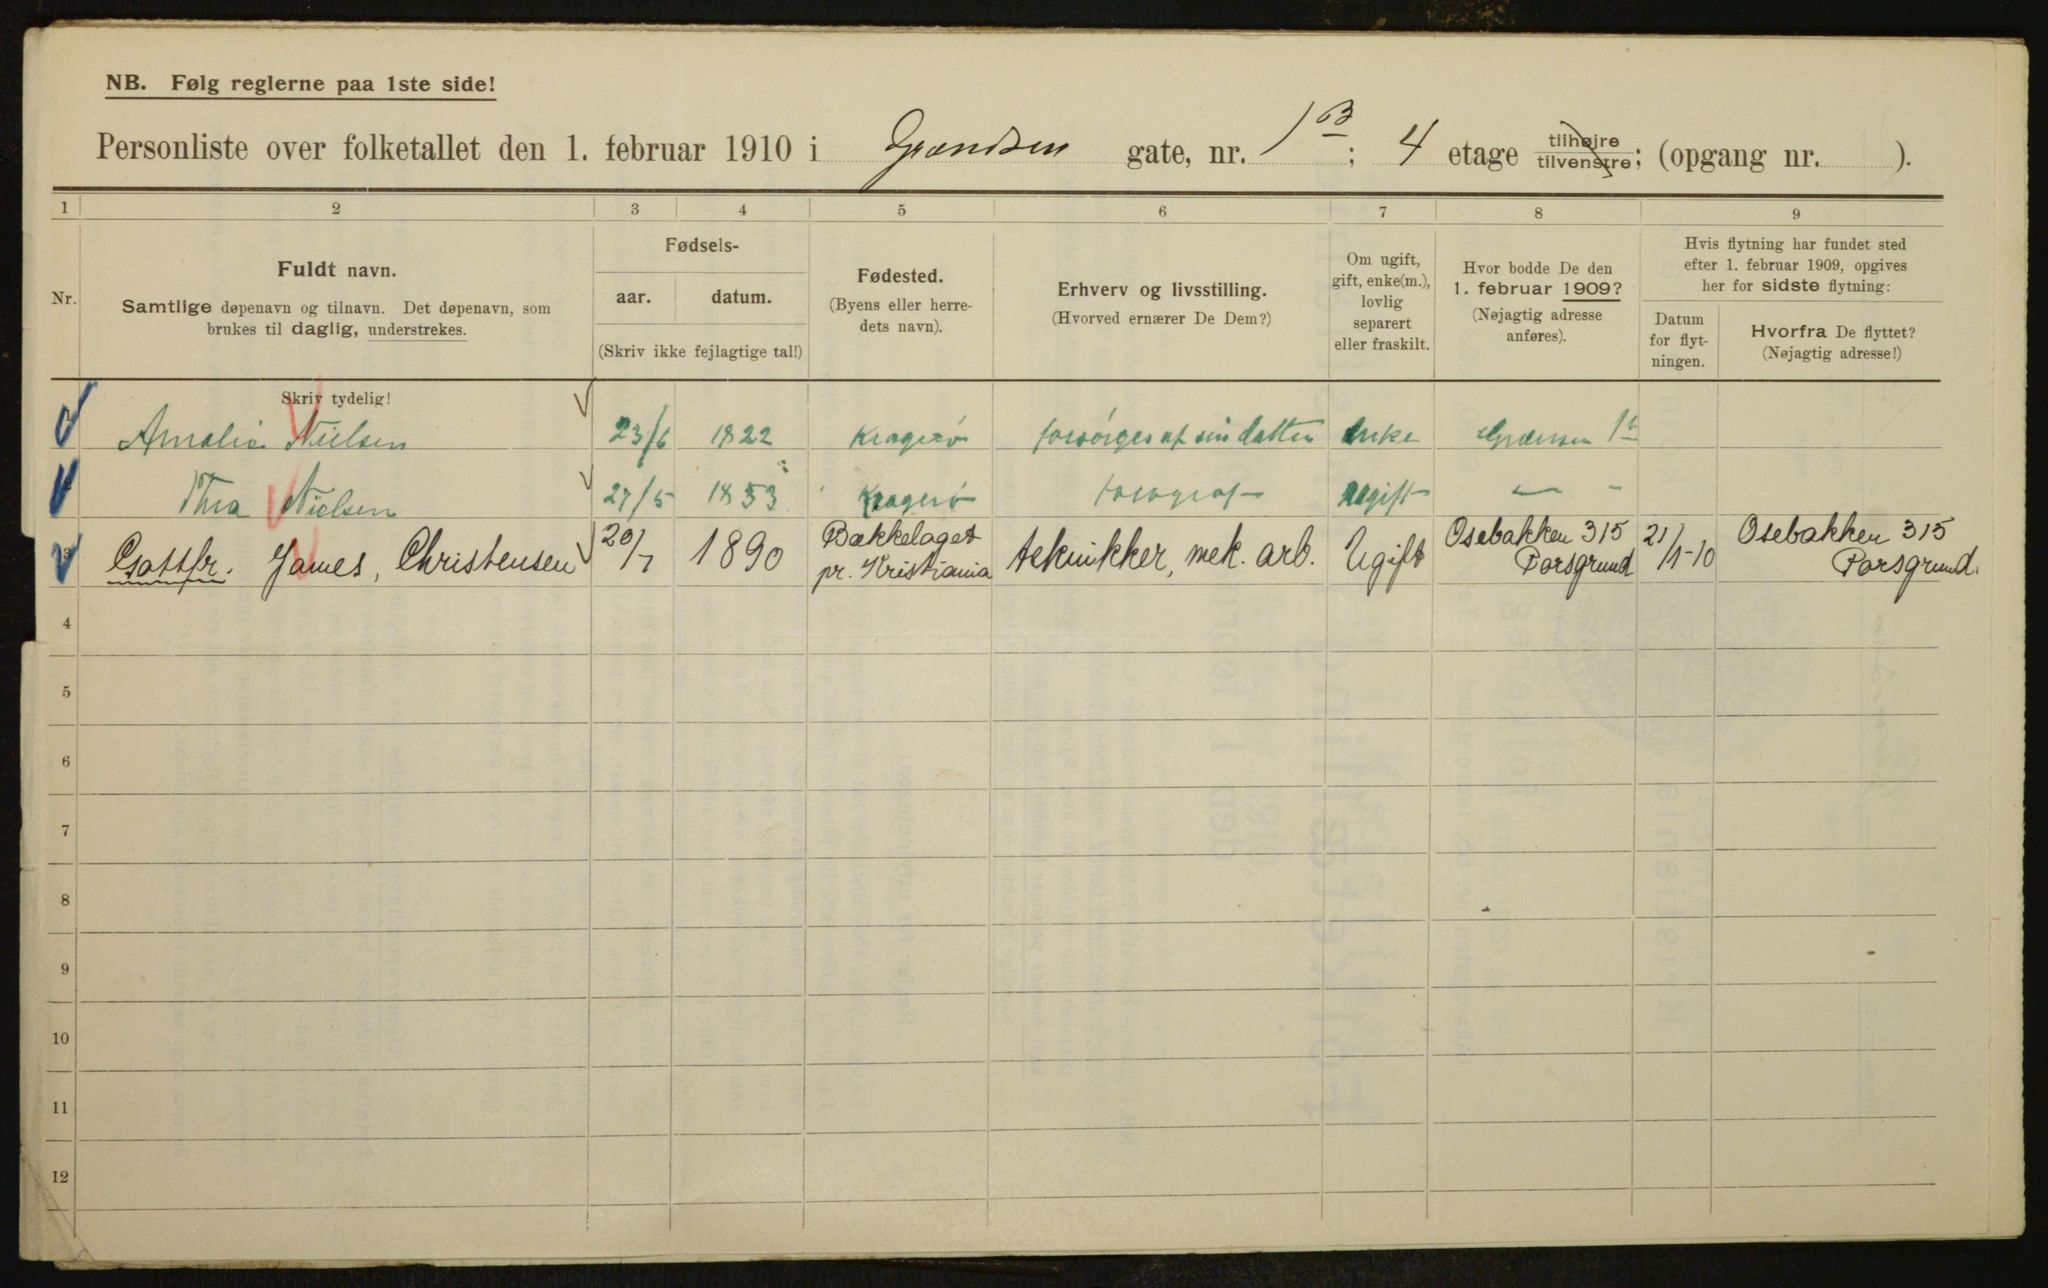 NB. Følg reglerne paa 1ste side!
Personliste over folketallet den 1. februar 1910 i Grændsen gate, nr. 1 B; 4 etage tilhøjre tilvenstre; (opgang nr. ).
1 2 3 4 5 6 7 8 9
Nr.
Fuldt navn.
Samtlige døpenavn og tilnavn. Det døpenavn, som
brukes til daglig, understrekes.
Fødsels-
aar. datum.
(Skriv ikke fejlagtige tal!)
Fødested.
(Byens eller herre-
dets navn).
Erhverv og livsstilling.
(Hvorved ernærer De Dem?)
Om ugift,
gift, enke(m.),
lovlig
separert
eller fraskilt.
Hvor bodde De den
1. februar 1909?
(Nøjagtig adresse
anføres).
Hvis flytning har fundet sted
efter 1. februar 1909, opgives
her for sidste flytning:
Datum
for flyt-
ningen.
Hvorfra De flyttet?
(Nøjagtig adresse!)
Skriv tydelig!
Amalie Nielsen 23/6 1822 Kragerø forsörges af sin datter Enke Grændsen 1b
Thea Nielsen 27/5 1853 Kragerø fotograf ugift — -
3 Gottfr. James, Christensen 20/7 1890 Bækkelaget pr. Kristiania teknikker, mek. arb. Ugift Osebakken 315 Porsgrund 21/1-10 Osebakken 315 Porsgrund.
4
5
6
7
8
9
10
11
12